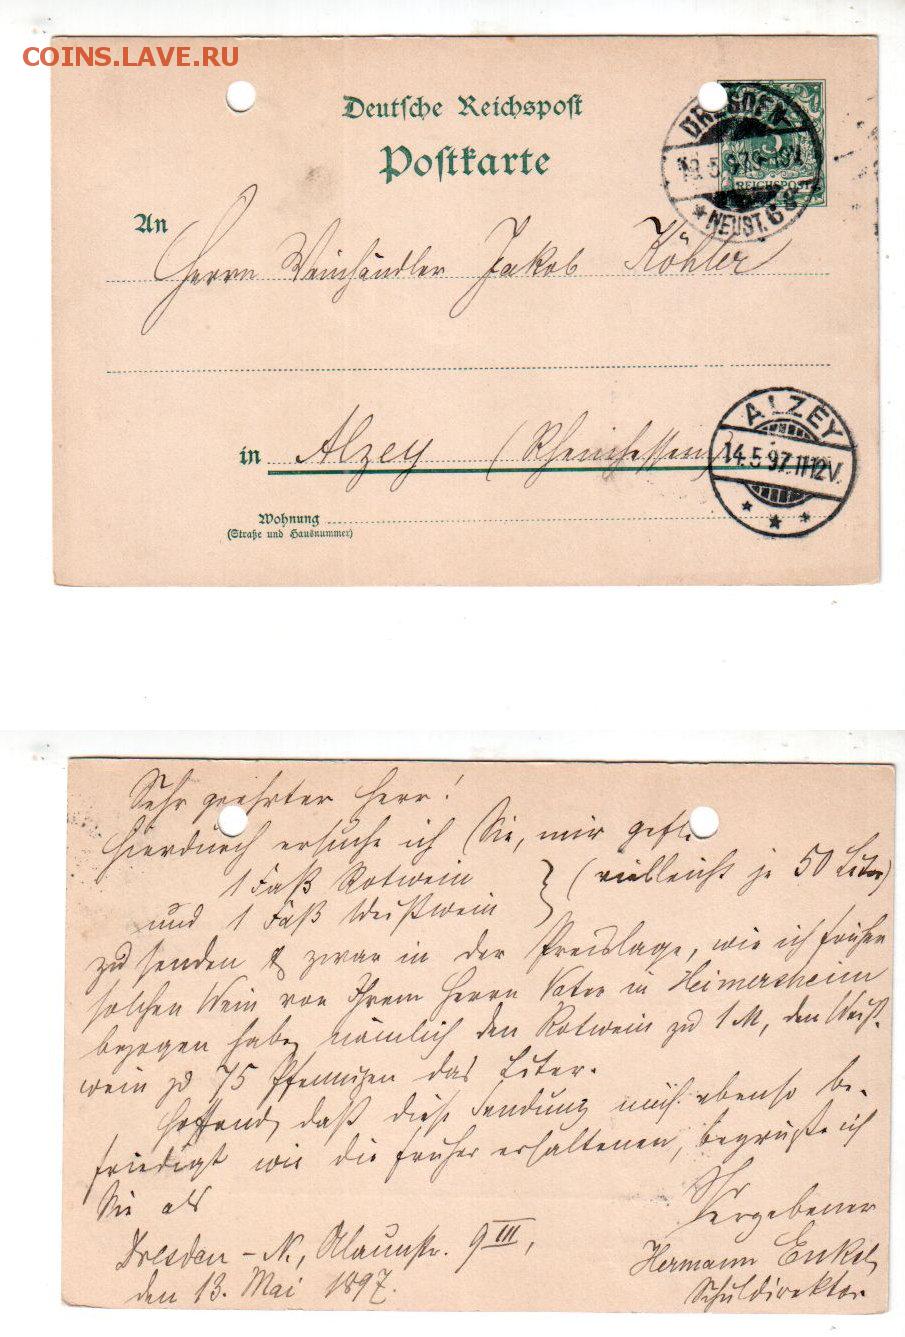 COINS.LAVE.RU
Deutsche Reichspost
Postkarte
DRESDEN
5 97
REICHSPOST
* NEUST. 6
An
Herrn Weinhändler Jakob Köhler
in Alzey (Rheinhessen)
ALZEY
14.5.97.11-12V.
Wohnung
(Straße und Hausnummer)
Sehr geehrter Herr!
Hierdurch ersuche ich Sie, mir gefl.
1 Faß Rotwein
und 1 Faß Weißwein } (vielleicht je 50 Liter)
zu senden & zwar in der Preislage, wie ich früher
solchen Wein von Ihrem Herrn Vater in Heimersheim
bezogen habe, nämlich den Rotwein zu 1 M, den Weiß-
wein zu 75 Pfennigen das Liter.
Hoffend, daß diese Sendung mich ebenso be-
friedigt wie die früher erhaltenen, begrüße ich
Sie als
Ihr ergebener
Dresden - N., Alaunstr. 9 III,
Hermann Enkel,
den 13. Mai 1897.
Schuldirektor